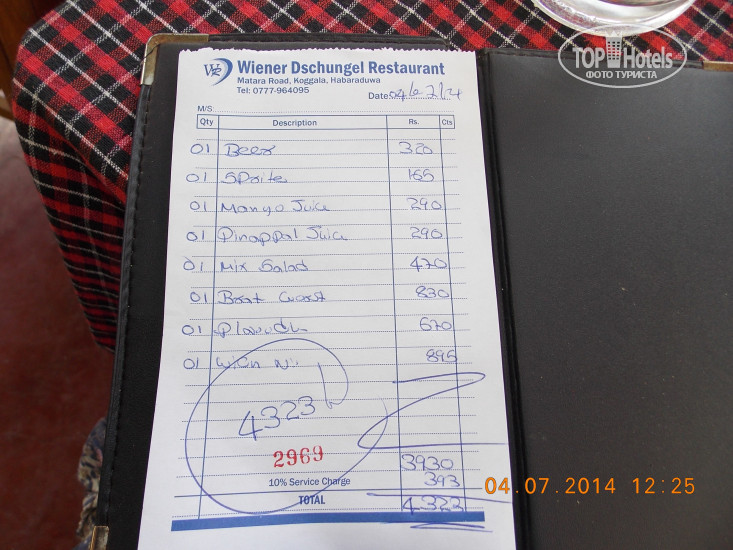 TOPHotels
ФОТО ТУРИСТА
Wiener Dschungel Restaurant
Matara Road, Koggala, Habaraduwa
Tel: 0777-964095
Date
M/S
Qty Description Rs. Cts
01 Beer 320
01 Sprite 165
01 Mango Juice 290
01 Pinappal Juice 290
01 Mix Salad 470
01 830
01 670
01 895
4323
2969
3930
10% Service Charge 393
TOTAL 4323
04.07.2014 12:25